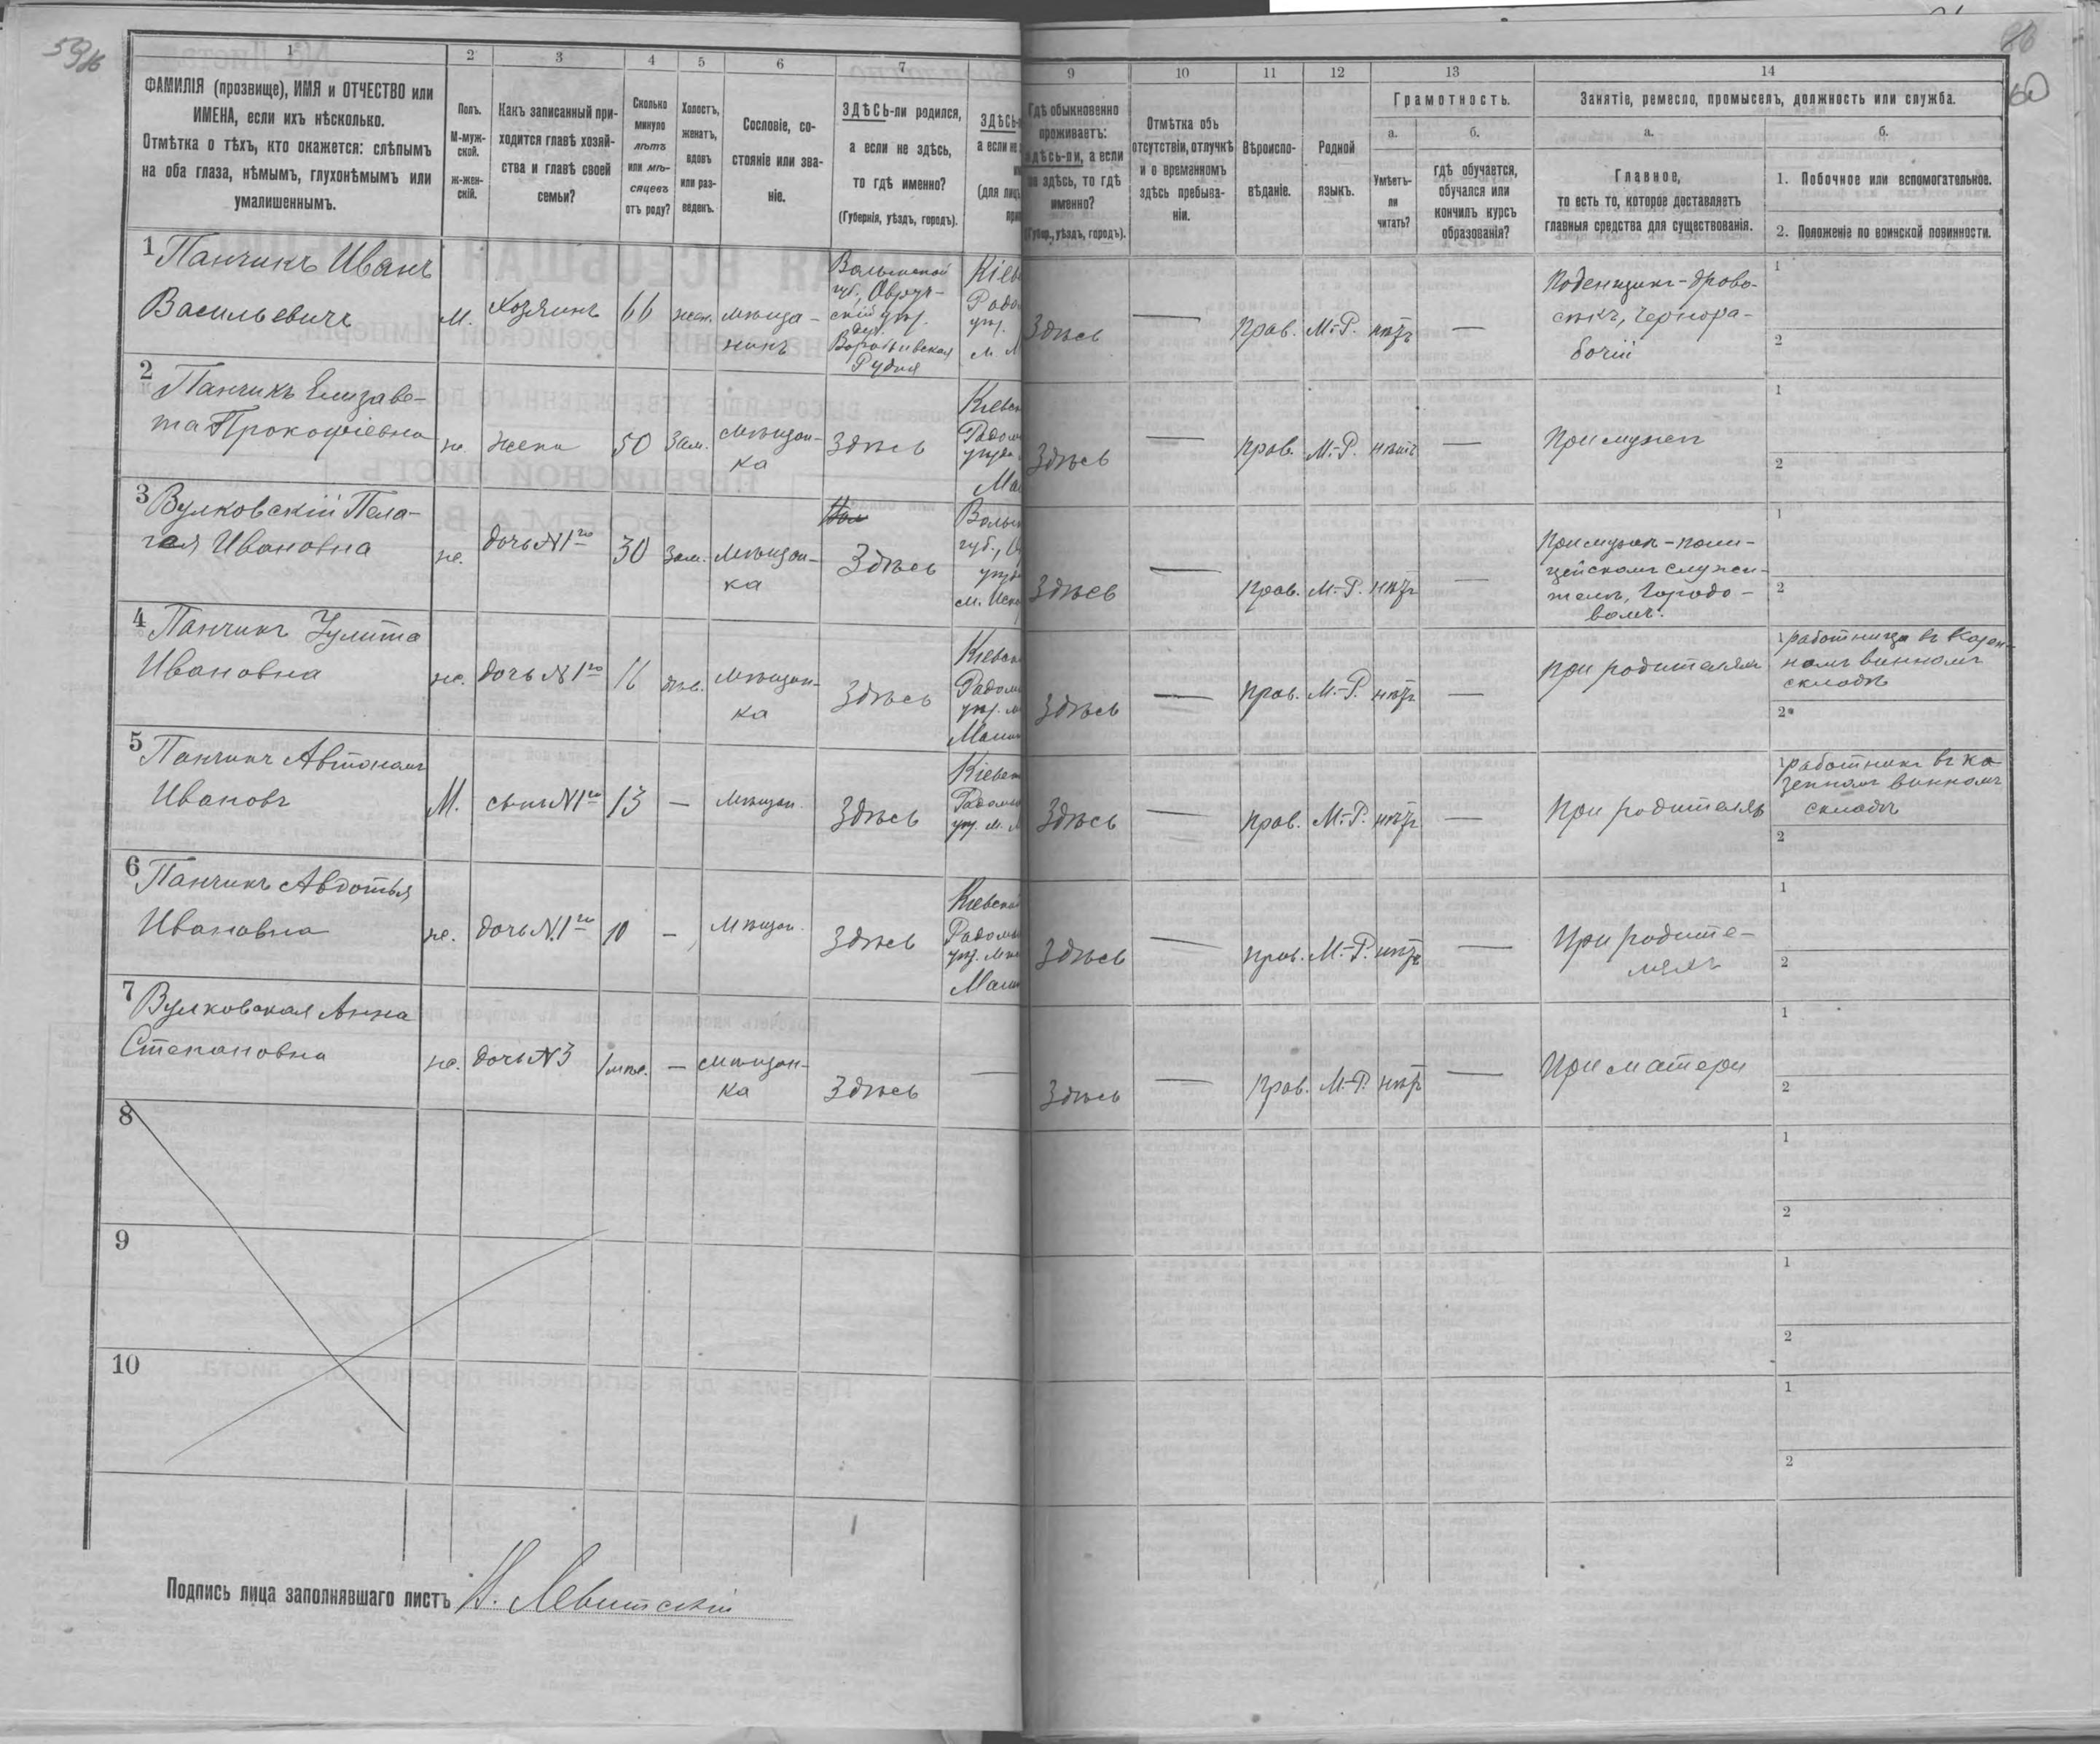 59
86
60
1
2
3
4
5
6
7
9
10
11
12
13
14
ФАМИЛІЯ (прозвище), ИМЯ и ОТЧЕСТВО или
ИМЕНА, если ихъ нѣсколько.
Отмѣтка о тѣхъ, кто окажется: слѣпымъ
на оба глаза, нѣмымъ, глухонѣмымъ или
умалишеннымъ.
Полъ.
М-муж-
ской.
ж-жен-
скій.
Какъ записанный при-
ходится главѣ хозяй-
ства и главѣ своей
семьи?
Сколько
минуло
лѣтъ
или мѣ-
сяцевъ
отъ роду?
Холостъ,
женатъ,
вдовъ
или раз-
веденъ.
Сословіе, со-
стояніе или зва-
ніе.
ЗДѢСЬ-ли родился,
а если не здѣсь,
то гдѣ именно?
(Губернія, уѣздъ, городъ).
ЗДѢСЬ
а если не
(для лицъ
Гдѣ обыкновенно
проживаетъ:
здѣсь-ли, а если
не здѣсь, то гдѣ
именно?
(Губер., уѣздъ, городъ).
Отмѣтка объ
отсутствіи, отлучкѣ
и о временномъ
здѣсь пребыва-
ніи.
Вѣроиспо-
вѣданіе.
Родной
языкъ.
Грамотность.
а.
б.
Умѣетъ-
ли
читать?
гдѣ обучается,
обучался или
кончилъ курсъ
образованія?
Занятіе, ремесло, промыселъ, должность или служба.
а.
б.
Главное,
то есть то, которое доставляетъ
главныя средства для существованія.
1. Побочное или вспомогательное.
2. Положеніе по воинской повинности.
1 Панчикъ Иванъ
Васильевичъ
М.
Хозяинъ
66
жен.
мѣща-
нинъ
Волынской
губ., Овруч-
скій уѣз.
дер.
Рудня
Кіев
Радо
уѣз.
Здѣсь
—
прав.
М.-Р.
нѣтъ
—
Поденщикъ-дрово-
сѣкъ, чернора-
бочій
1
2
2 Панчикъ Елизаве-
та Прокофіевна
ж.
жена
50
Зам.
Мѣщан-
ка
Здѣсь
Кіевск
Радом
уѣзда
Мал
Здѣсь
—
прав.
М.-Р.
нѣтъ
—
При мужѣ
1
2
3 Вулковскій Пела-
гея Ивановна
ж.
дочь N 1го
30
зам.
Мѣщан-
ка
Здѣсь
Волын
губ.,
уѣзд
Здѣсь
—
прав.
М.-Р.
нѣтъ
—
При мужѣ-поли-
цейскомъ служи-
телѣ, Городо-
вомъ.
1
2
4 Панчикъ Улита
Ивановна
ж.
дочь N 1го
16
дѣв.
Мѣщан-
ка
Здѣсь
Кіевск
Радом
уѣз. м
Малин
Здѣсь
—
прав.
М.-Р.
нѣтъ
—
при родителяхъ
1 работница въ казен-
номъ винномъ
складѣ
2
5 Панчикъ Автономъ
Ивановъ
М.
сынъ N 1го
13
—
Мѣщан.
Здѣсь
Кіевск
Радом
уѣз. м. М
Здѣсь
—
прав.
М.-Р.
нѣтъ
—
При родителяхъ
1 работникъ въ ка-
зенномъ винномъ
складѣ
2
6 Панчикъ Авдотья
Ивановна
ж.
дочь N. 1го
10
—
Мѣщан.
Здѣсь
Кіевской
Радом
уѣз.
Малин
Здѣсь
—
прав.
М.-Р.
нѣтъ
—
При родите-
ляхъ
1
2
7 Вулковская Анна
Степановна
ж.
дочь N 3
1 мѣс.
—
Мѣщан-
ка
Здѣсь
—
Здѣсь
—
прав.
М.-Р.
нѣтъ
—
При матери
1
2
8
1
2
9
1
2
10
1
2
Подпись лица заполнявшаго листъ Н. Левитскій